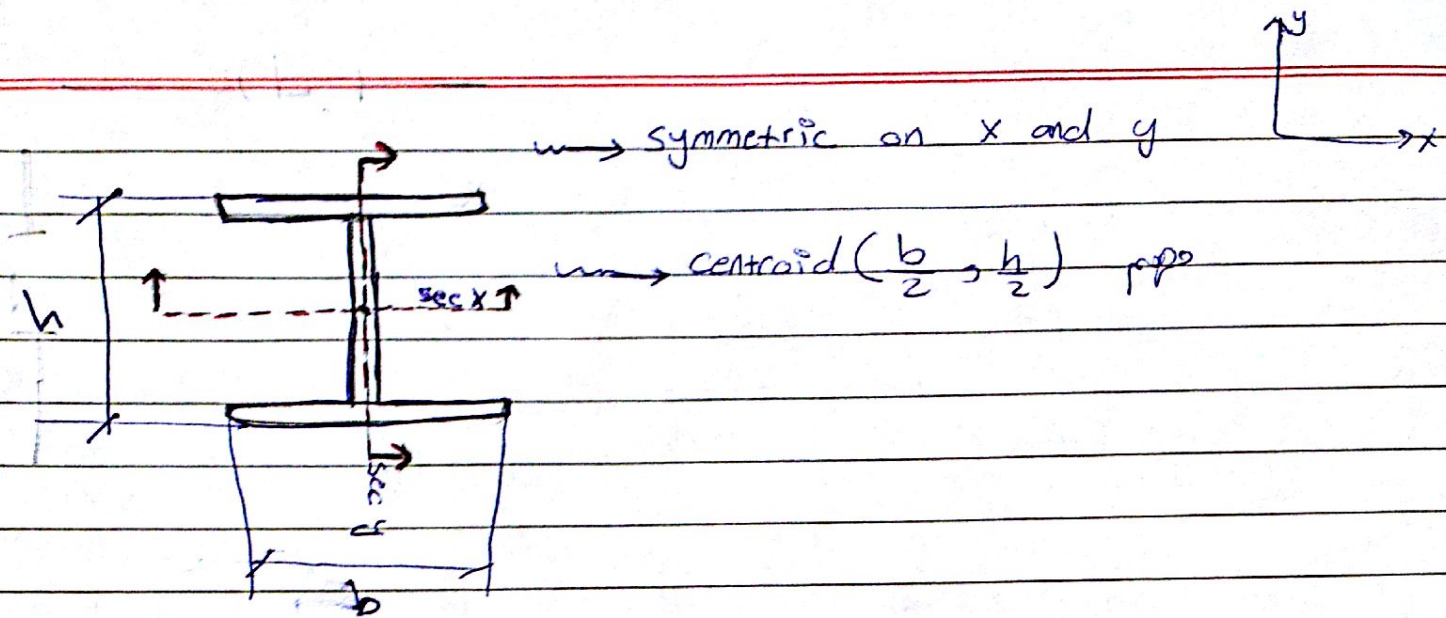 y
symmetric on x and y
x
centroid (b/2, h/2)
sec x
h
sec y
b